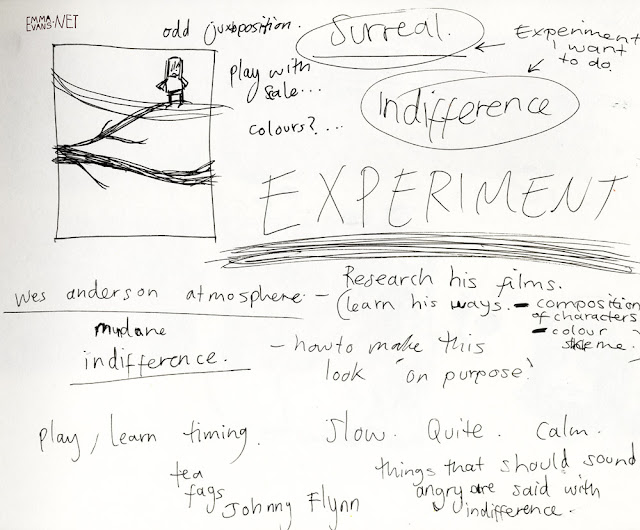 EMMA
EVANS.NET
odd juxtoposition.
Surreal.
Experiment
I want
to do.
play with
sale...
colours?....
Indifference
EXPERIMENT
wes anderson atmosphere. -
Research his films.
(learn his ways. - composition
of characters
- colour
skeme.
mundane
indifference.
- how to make this
look 'on purpose?'
play, learn timing.
Slow. Quite. Calm.
tea
fags
Johnny Flynn
things that should sound
angry are said with
indifference.